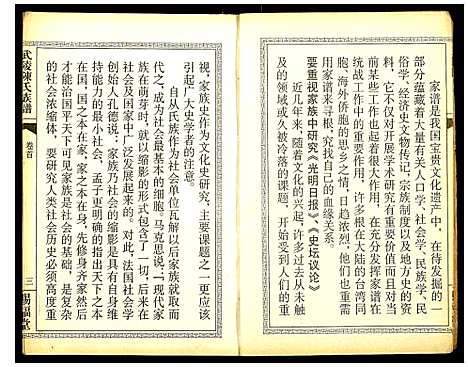 家谱是我国宝贵文化遗产中，在待发掘的一
部分蕴藏着大量有关人口学、社会学、民族学、民
俗学、经济史文物传记、宗族制度以及地方史的资
料，它不仅对开展学术研究有重要价值而且对当
前某些工作也起着很大作用，在充分发挥家谱在
统战工作中的重要作用，许多根在大陆的台湾同
胞，海外侨胞的思乡之情，日趋浓烈，他们也重需
用家谱来寻根，究找自己的血缘关系。
要重视家族中研究《光明日报》、《史坛议论》
近几年来，随着文化的兴起，许多过去从未触
及的领域或久被冷落的课题，开始受到人们的重
视，家族史作为文化史研究，主要课题之一更应该
引起广大史学者的注意。
自从氏族作为社会单位瓦解以后家族就取而
代之，成为社会最基本的细胞。马克思说，“现代家
族在萌芽时，就以缩影的形式包含了一切，后来在
社会及国家中广泛发展起来的。对此，法国社会学
创始人孔德说，家族乃社会的缩影是具有自身维
持能力的最小社会，孟子更明确的指出天下之本
在国，国之本在家，家之本在身，先修身齐家然后
才能治国平天下可见家族是社会的基础，是复杂
社会的缩浓体，要研究人类社会历史必须高度重
武陵陳氏族譜
卷首
三
賜福堂